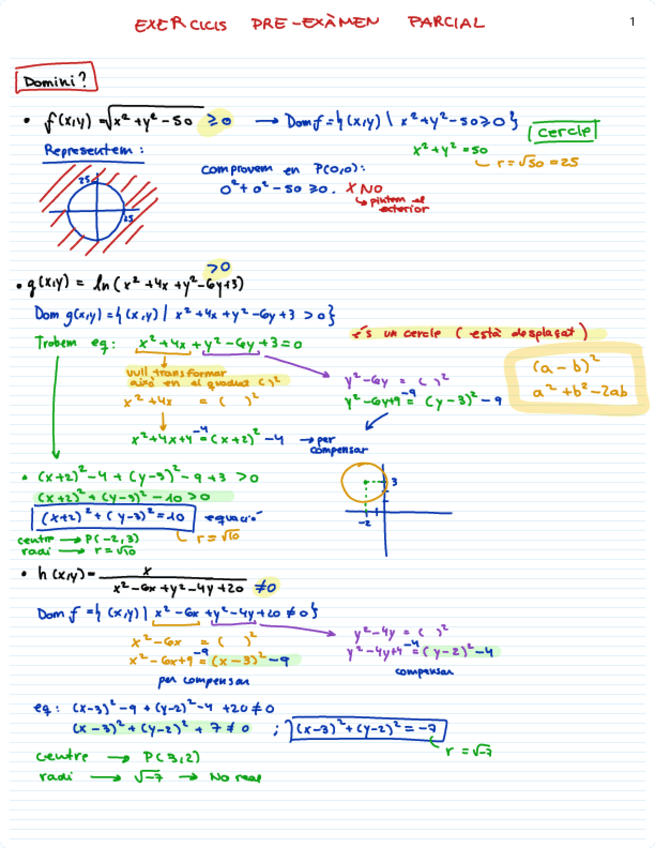 EXERCICIS PRE-EXÀMEN PARCIAL
1
Domini?
• f(x,y) = √x² + y² - 50 ≥ 0 → Dom f = { (x,y) \ x² + y² - 50 ≥ 0 }
cercle
Representem:
x² + y² = 50
r = √50 = 25
comprovem en P(0,0):
0² + 0² - 50 ≥ 0. X NO
↳ pintem el exterior
25
25
>0
• g(x,y) = ln(x² + 4x + y² - 6y + 3)
Dom g(x,y) = { (x,y) | x² + 4x + y² - 6y + 3 > 0 }
és un cercle (està desplaçat)
Trobem eq: x² + 4x + y² - 6y + 3 = 0
vull transformar
això en el quadrat ( )²
x² + 4x = ( )²
x² + 4x + 4 -4 = (x+2)² - 4 → per compensar
y² - 6y = ( )²
y² - 6y + 9 -9 = (y-3)² - 9
(a - b)²
a² + b² - 2ab
• (x+2)² - 4 + (y-3)² - 9 + 3 > 0
(x+2)² + (y-3)² - 10 > 0
(x+2)² + (y-3)² = 10 equació
centre → P(-2,3)
radi → r = √10
r = √10
3
-2
• h(x,y) = x / x² - 6x + y² - 4y + 20 ≠ 0
Dom f = { (x,y) | x² - 6x + y² - 4y + 20 ≠ 0 }
x² - 6x = ( )²
x² - 6x + 9 -9 = (x-3)² - 9
per compensar
y² - 4y = ( )²
y² - 4y + 4 -4 = (y-2)² - 4
compensar
eq: (x-3)² - 9 + (y-2)² - 4 + 20 ≠ 0
(x-3)² + (y-2)² + 7 ≠ 0 ; (x-3)² + (y-2)² = -7
r = √-7
centre → P(3,2)
radi → √-7 → No real